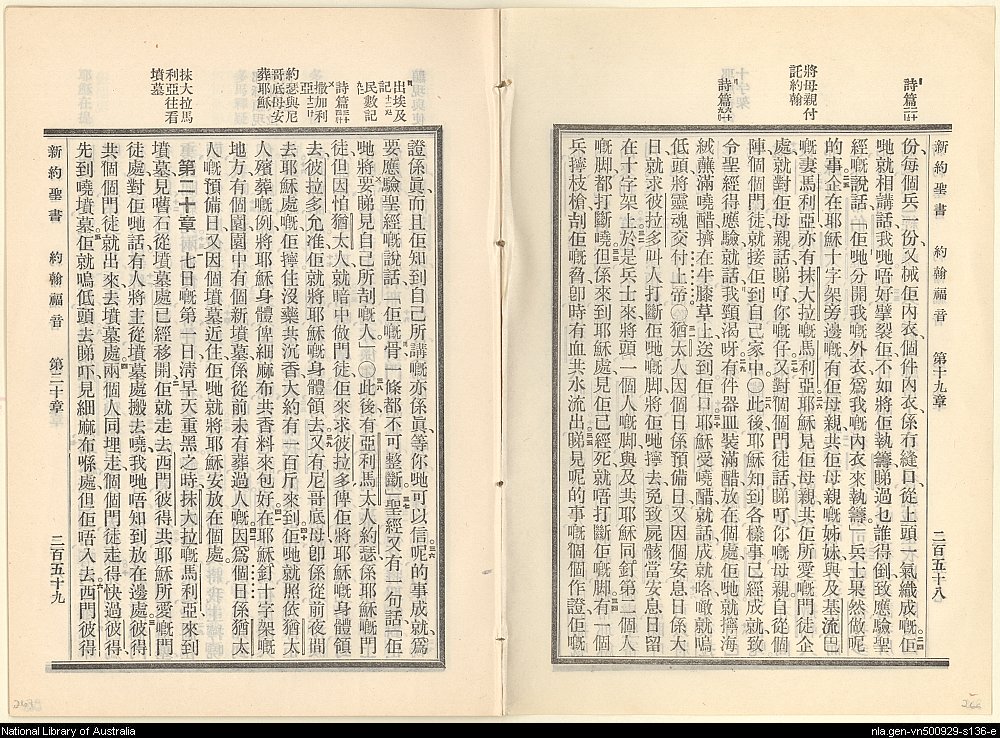 新約聖書 約翰福音 第十九章 二百五十八
詩篇二十二
將母親付託約翰
詩篇六十九
份每個兵一份又械佢內衣個件內衣係冇縫口從上頭一氣織成嘅佢
哋就相講話我哋唔好擘裂佢不如將佢執籌睇過乜誰得倒致應驗聖
經嘅說話「佢哋分開我嘅外衣爲我嘅內衣來執籌」兵士果然做呢
的事企在耶穌十字架旁邊嘅有佢母親共佢母親嘅姊妹與及基流巴
嘅妻馬利亞亦有抹大拉嘅馬利亞耶穌見佢母親共佢所愛嘅門徒企
處就對佢母親話睇吓你嘅仔又對個個門徒話睇吓你嘅母親自從個
陣個個門徒就接佢到自己家中〇此後耶穌知到各樣事已經成就致
令聖經得應驗就話我頸渴呀有件器皿裝滿醋放在個處佢哋就擰海
絨蘸滿嘵醋擠在牛膝草上送到佢口耶穌受嘵醋就話成就咯噉就嗚
低頭將靈魂交付上帝〇猶太人因個日係預備日又因個安息日係大
日就求彼拉多叫人打斷佢哋嘅脚將佢哋擰去免致屍骸當安息日留
在十字架上於是兵士來將頭一個人嘅脚與及共耶穌同釘第二個人
嘅脚都打斷嘵但係來到耶穌處見佢已經死就唔打斷佢嘅脚有一個
兵擰枝槍刮佢嘅脅卽時有血共水流出睇見呢的事嘅個個作證佢嘅
出埃及記十二
民數記九
詩篇三十四
撒加利亞十二
約瑟與尼哥底母安葬耶穌
抹大拉馬利亞往看墳墓
證係眞而且佢知到自己所講嘅亦係眞等你哋可以信呢的事成就爲
要應驗聖經嘅說話「佢嘅骨一條都不可整斷」聖經又有一句話「佢
哋將要睇見自己所刮嘅人」〇此後有亞利馬太人約瑟係耶穌嘅門
徒但因怕猶太人就暗中做門徒佢來求彼拉多俾佢將耶穌嘅身體領
去彼拉多允准佢就將耶穌嘅身體領去又有尼哥底母卽係從前夜間
去耶穌處嘅佢擰住沒藥共沉香大約有一百斤來到佢哋就照依猶太
人殯葬嘅例將耶穌身體俾細麻布共香料來包好在耶穌釘十字架嘅
地方有個園園中有個新墳墓係從前未有葬過人嘅因爲個日係猶太
人嘅預備日又因個墳墓近住佢哋就將耶穌安放在個處
第二十章
一七日嘅第一日淸早天重黑之時抹大拉嘅馬利亞來到
墳墓見嚿石從墳墓處已經移開佢就走去西門彼得共耶穌所愛嘅門
徒處對佢哋話有人將主從墳墓處搬去嘵我哋唔知到放在邊處彼得
共個個門徒就出來去墳墓處兩個人同埋走個個門徒走得快過彼得
先到嘵墳墓佢就嗚低頭去睇吓見細麻布喺處但佢唔入去西門彼得
新約聖書 約翰福音 第二十章 二百五十九
National Library of Australia
nla.gen-vn500929-s136-e